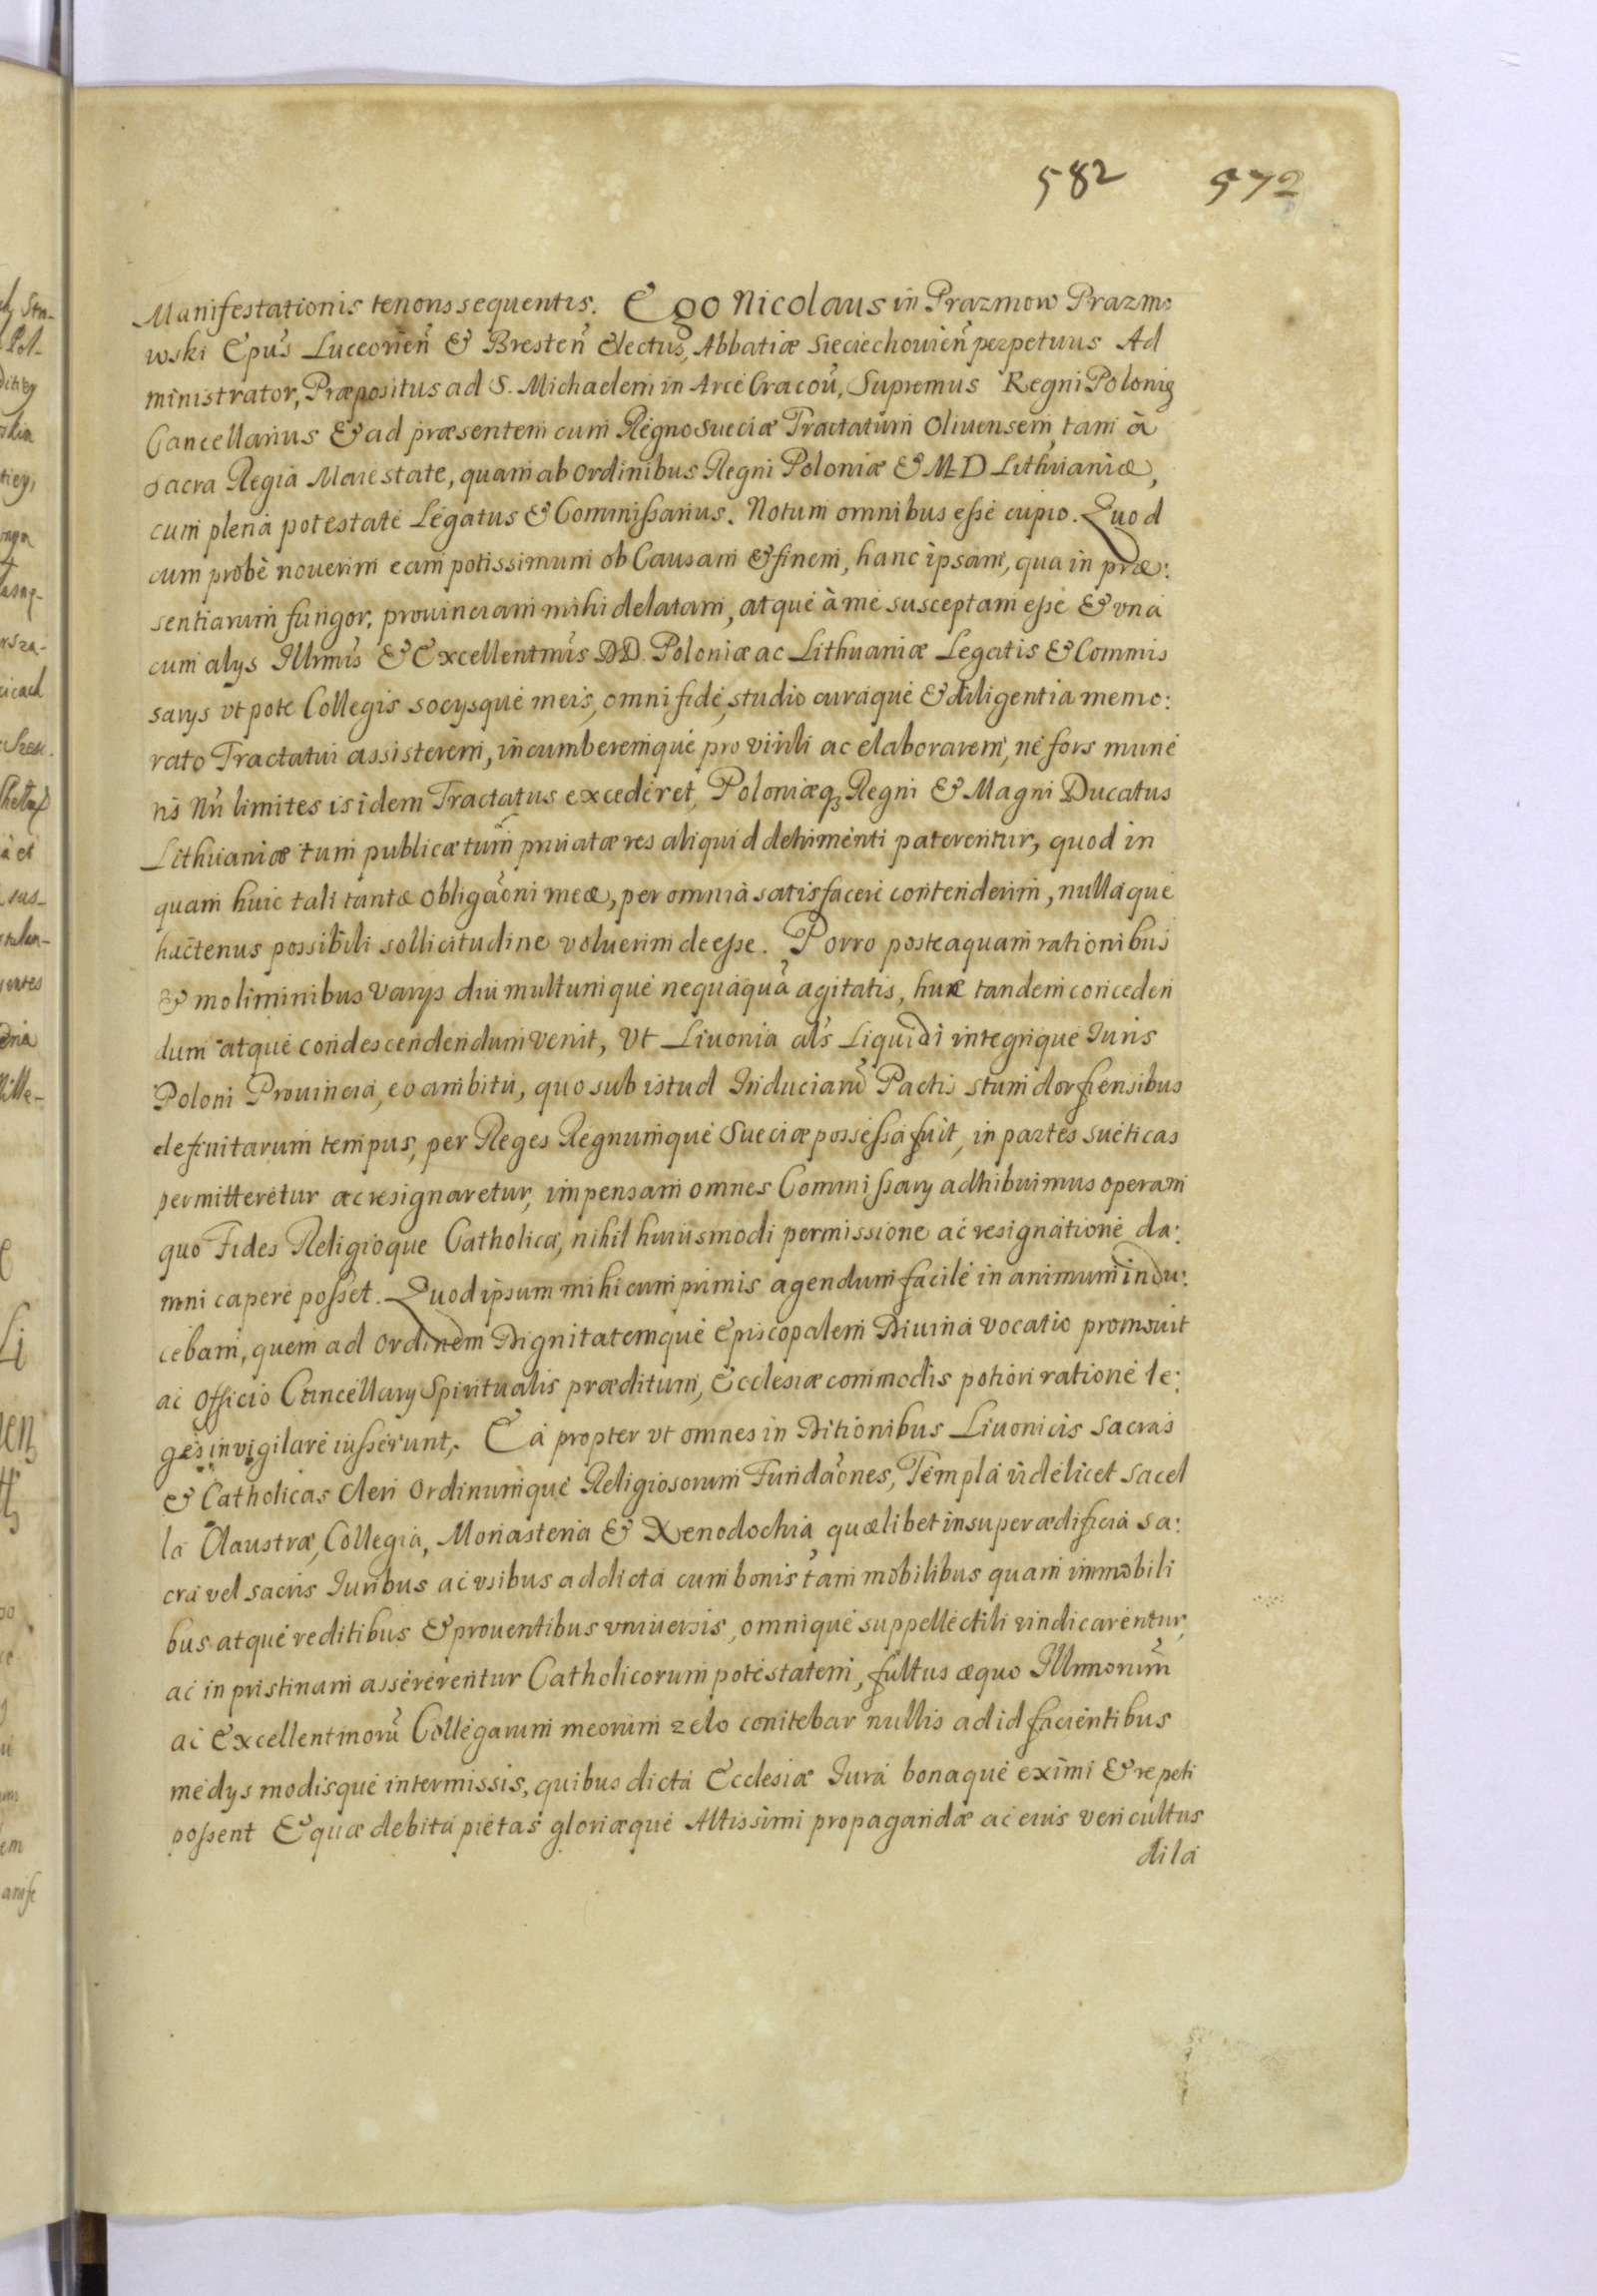 582 572
Manifestationis tenoris sequentis. Ego Nicolaus in Prazmow Prazmo
wski Epũs Luceorieñ & Bresteñ Electus, Abbatiæ Sieciechouieñ perpetuus Ad
ministrator, Præpositus ad S. Michaelem in Arce Cracoũ, Supremus Regni Polonię
Cancellarius & ad præsentem cum Regno Sueciæ Tractatum Oliuensem, tam à
Sacra Regia Maiestate, quam ab Ordinibus Regni Poloniæ & M D Lithuaniæ,
cum plena potestate Legatus & Commissarius. Notum omnibus esse cupio. Quod
cum probè nouerim eam potissimum ob Causam & finem, hanc ipsam, qua in præ:
sentiarum fungor, prouinciam mihi delatam, atque à me susceptam esse & vna
cum alys Illrmis & Excellentmis DD. Poloniæ ac Lithuaniæ Legatis & Commis
sarys vt pote Collegis socysque meis, omni fide, studio curaque & diligentia memo:
rato Tractatui assisterem, incumberemque pro virili ac elaborarem, ne fors mune
ris ñri limites is idem Tractatus excederet, Poloniæq; Regni & Magni Ducatus
Lithuaniæ tum publicæ tum priuatæ res aliquid detrimenti paterentur, quod in
quam huic tali tantæ obligãoni meæ, per omnia satisfacere contenderim, nullaque
hactenus possibili sollicitudine voluerim deesse. Porro posteaquam rationibus
& moliminibus varys diu multumque nequaquã agitatis, huc tandem conceden
dum atque condescendendum venit, Vt Liuonia als Liquidi integrique Iuris
Poloni Prouincia, eo ambitu, quo sub istud Induciarũ Pactis Stumdorfiensibus
definitarum tempus, per Reges Regnumque Sueciæ possessa fuit, in partes sueticas
permitteretur ac resignaretur, impensam omnes Commissary adhibuimus operam
quo Fides Religioque Catholica, nihil huiusmodi permissione ac resignatione da:
mni capere posset. Quod ipsum mihi cum primis agendum facile in animum indu:
cebam, quem ad Ordinem Dignitatemque Episcopalem Diuina vocatio promouit
ac Officio Cancellary Spiritualis præditum, Ecclesiæ commodis potiori ratione le:
ges invigilare iusserunt. Ea propter vt omnes in Ditionibus Liuonicis Sacras
& Catholicas Cleri Ordinumque Religiosorum Fundãones, Templa videlicet Sacel
la Claustra, Collegia, Monasteria & Xenodochia quælibet insuper ædificia sa:
cra vel sacris Iuribus ac vsibus addicta cum bonis tam mobilibus quam immobili
bus atque reditibus & prouentibus vniuersis, omnique suppellectili vindicarentur,
ac in pristinam assererentur Catholicorum potestatem, fultus æquo Illrmorum
ac Excellentmorũ Collegarum meorum zelo conitebar nullis ad id facientibus
medys modisque intermissis, quibus dicta Ecclesiæ Iura bonaque eximi & repeti
possent & quæ debita pietas gloriæque Altissimi propagandæ ac eius veri cultus
dila